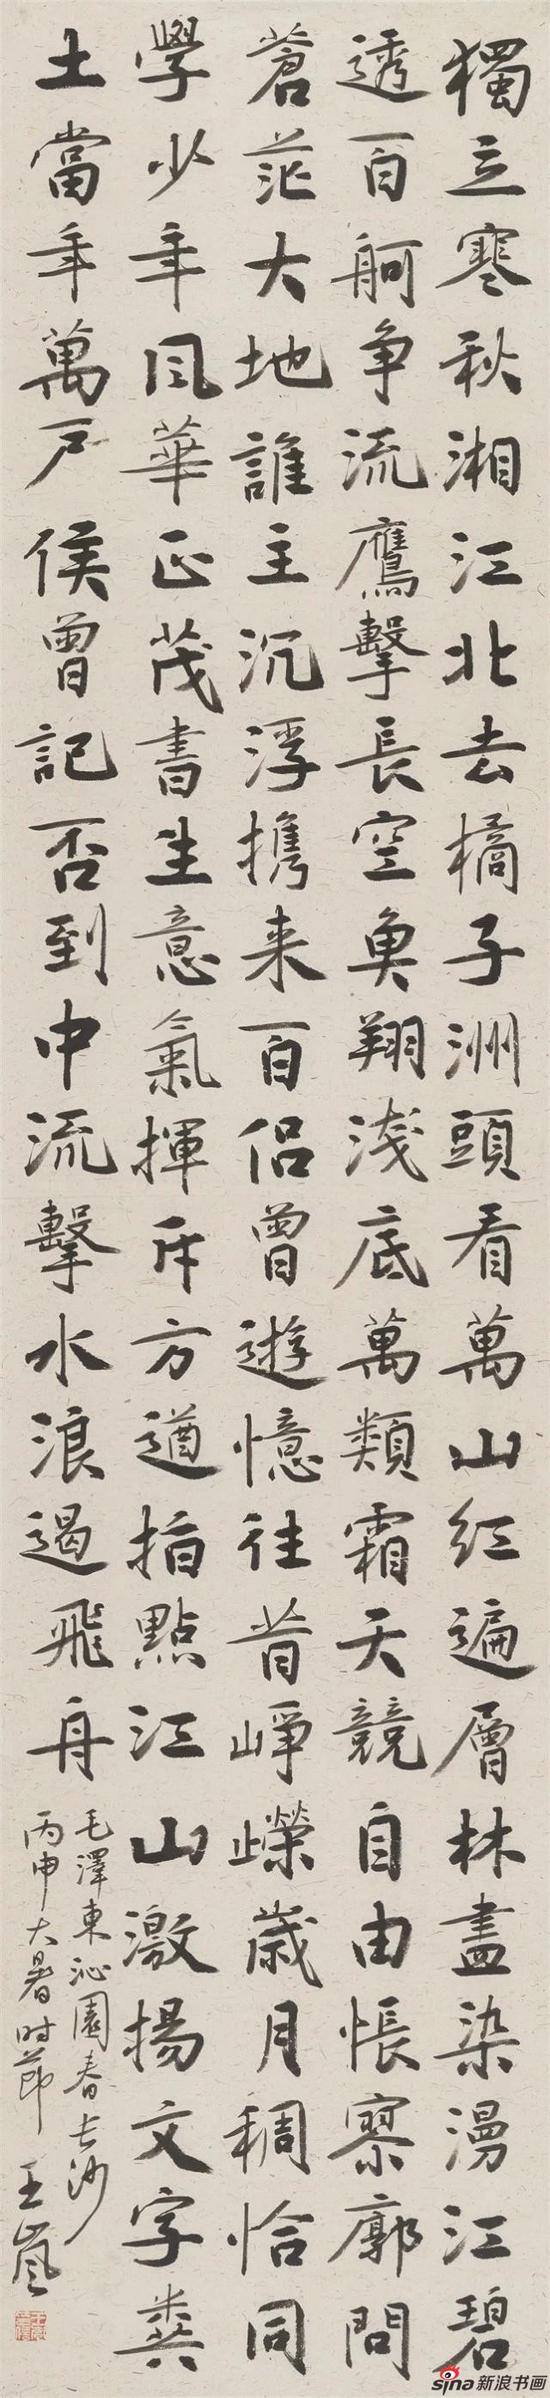 獨立寒秋湘江北去橘子洲頭看萬山紅遍層林盡染漫江碧
透百舸争流鷹擊長空魚翔淺底萬類霜天競自由悵寥廓問
蒼茫大地誰主沉浮携来百侣曾遊憶往昔崢嶸歲月稠恰同
學少年風華正茂書生意氣揮斥方遒指點江山激揚文字糞
土當年萬戶侯曾記否到中流擊水浪遏飛舟
毛澤東沁園春长沙
丙申大暑时節 王嵐
sina新浪书画